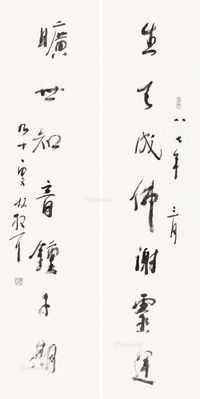 生天成佛謝靈運
八七年三月
曠世知音鍾子期
九十叟林散耳